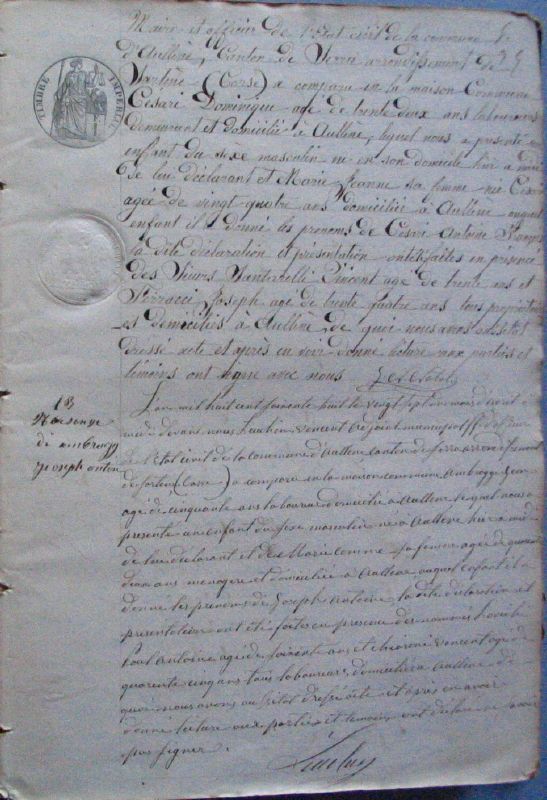 Maire et officier de l'Etat civil de la commune
D'Aullène, Canton de Serra arrondissement de
Sartène (Corse) a comparu en la maison Commune
Cesari Dominique agé de trente deux ans laboureur
demeurant et domicilié à Aullène, lequel nous a présenté un
enfant du sexe masculin né en son domicile hier à midi
de lui déclarant et Marie Jeanne sa femme née
agée de vingt quatre ans domiciliée à Aullène auquel
enfant il a donné les prénoms de César Antoine François
la dite déclaration et présentation ont été faites en présence
des Sieurs Santarelli Vincent agé de trente ans et
Joseph agé de trente quatre ans tous propriétaires
et domiciliés à Aullène, de quoi nous avons
dressé acte et après en avoir donné lecture aux parties et
témoins ont signé avec nous
TIMBRE IMPERIAL
18
Naissance
di ambroggi
joseph antoine
L'an mil huit cent soixante huit le vingt sept du mois d'
midi devant nous vincent adjoint
de l'état civil de la commune d'aullene canton de serra arrondissement
de sartene (Corse) a comparu en la maison commune ambroggi
agé de cinquante ans laboureur domicilié a aullene lequel nous a
presenté un enfant du sexe masculin né a aullene hier a midi
de lui declarant et de Marie sa femme agée de quarante
deux ans menagere et domiciliée a aullene auquel enfant il a
donné les prenoms de joseph antoine la dite declaration et
presentation ont été faites en presence des nommés
Paul antoine agé de soixante ans et vincent agé de
quarente cinq ans tous laboureurs domiciliés a aullene de
quoi nous avons dressé acte et apres en avoir
donné lecture aux parties et temoins ont declaré ne savoir
pas signer.